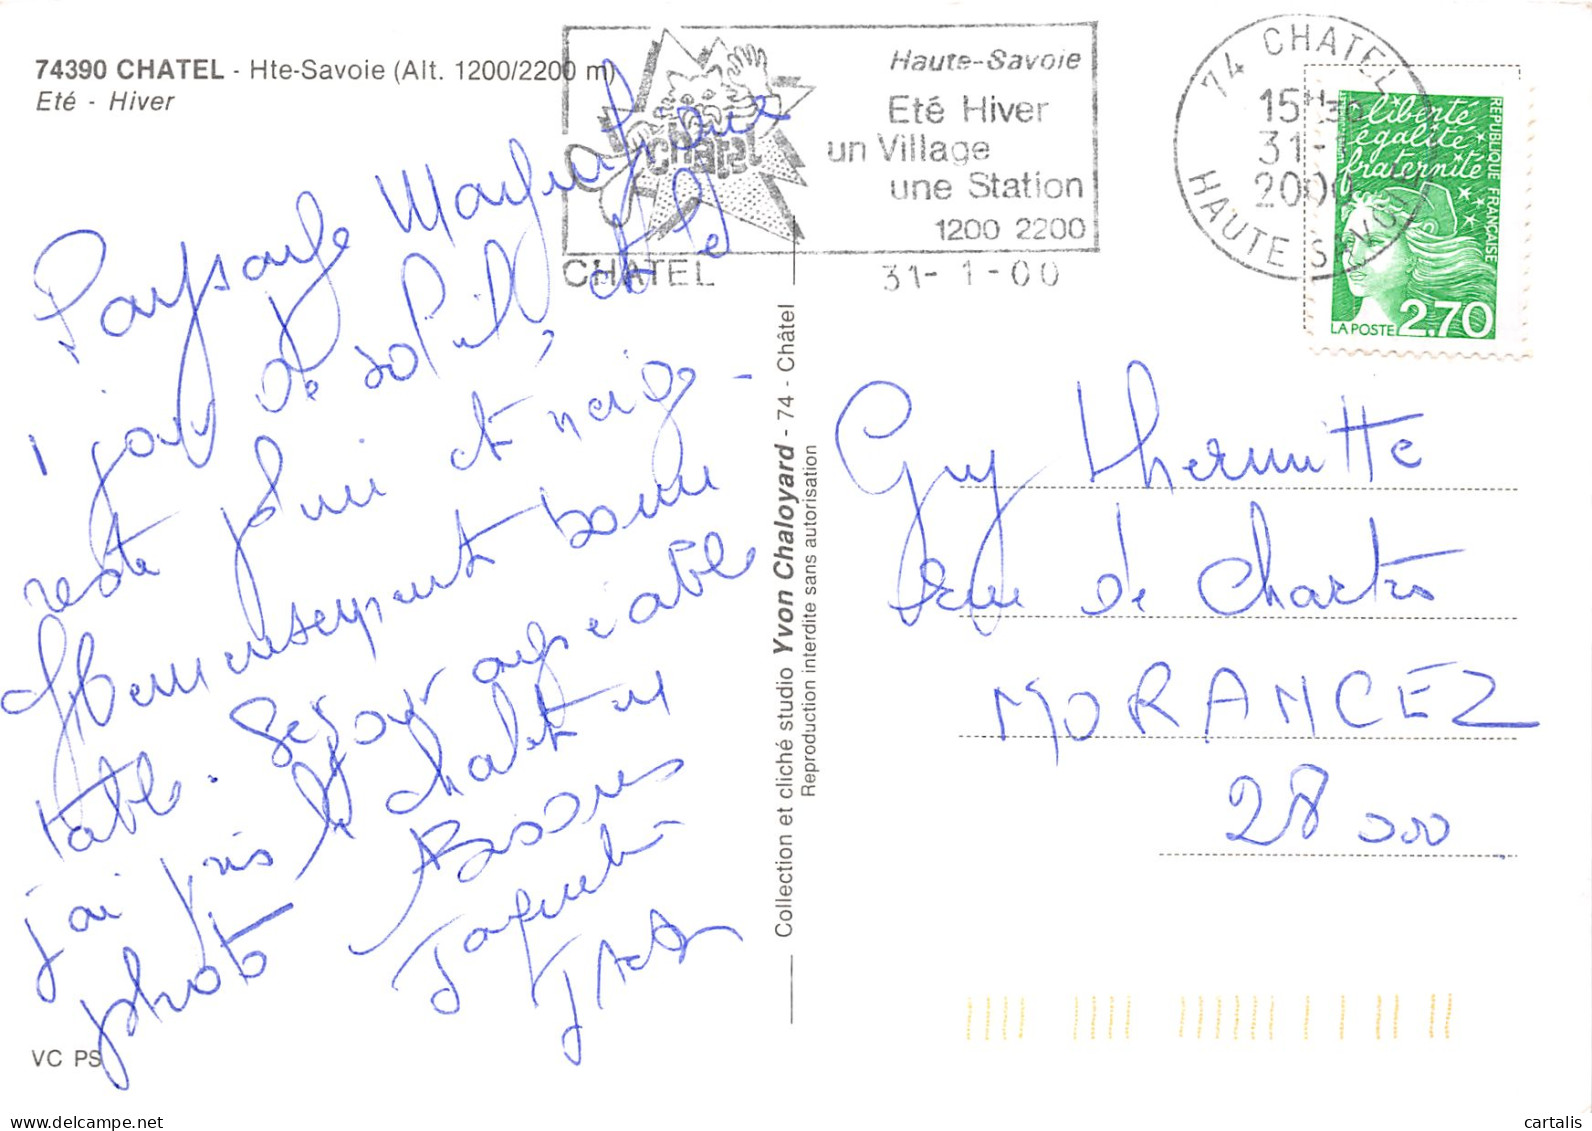 74390 CHATEL - Hte-Savoie (Alt. 1200/2200 m)
Eté - Hiver
Paysage Magnifique
1 jour de soleil, et le
reste pluie et neige -
Heureusement bonne
table. Séjour agréable
j'ai pris le chalet en
photo
Bisous
VC PS
Chatel
Haute-Savoie
Eté Hiver
un Village
une Station
1200 2200
CHATEL 31-1-00
74 CHATEL
15H30
31-1
2000
HAUTE SAVOIE
liberté
égalité
fraternité
REPUBLIQUE FRANÇAISE
LA POSTE 2,70
Collection et cliché studio Yvon Chaloyard - 74 - Châtel
Reproduction interdite sans autorisation
Guy Lhermitte
rue de Chartres
MORANCEZ
28 000
cartalis